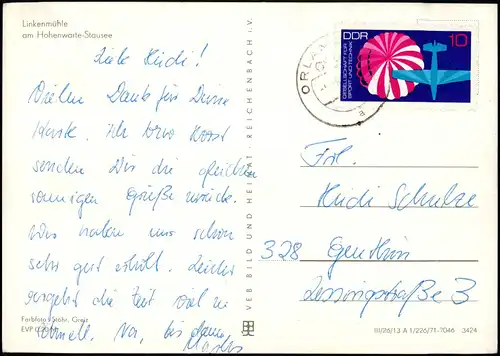 Linkenmühle
am Hohenwarte-Stausee
Liebe Heidi!
Vielen Dank für Deine
Karte. Ich bzw Horst
senden Dir die gleichen
sonnigen Grüße zurück.
Wir haben uns schon
sehr gut erholt. Leider
vergeht die Zeit viel zu
schnell. Na, bis dann
Farbfoto: Stöhr, Greiz
EVP 0,20 M
VEB BILD UND HEIMAT · REICHENBACH i. V.
ORLA
DDR 10
GESELLSCHAFT FÜR
SPORT UND TECHNIK
Frl.
Heidi Schulze
328 Genthin
Lessingstraße 3
III/26/13 A 1/226/71-7046 3424